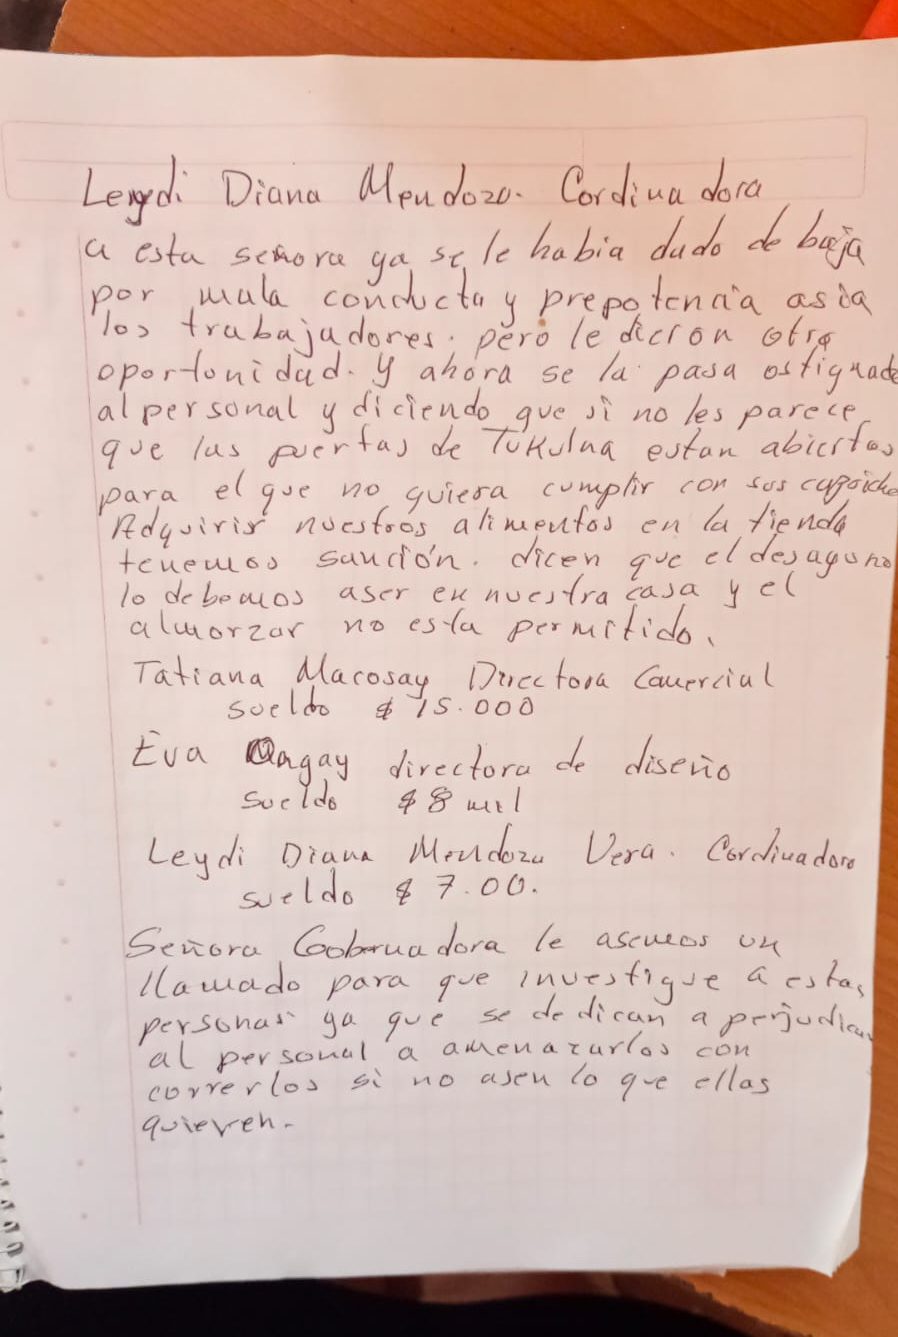 Leydi Diana Mendoza. Cordinadora
a esta señora ya se le habia dado de baja
por mala conducta y prepotencia asia
los trabajadores. pero le dieron otra
oportunidad. y ahora se la pasa ostignado
al personal y diciendo que si no les parece
que las puertas de Tukulna estan abiertas
para el que no quiera cumplir con sus capriche
Adquirir nuestros alimentos en la tienda
tenemos sanción. dicen que el desayuno
lo debemos aser en nuestra casa y el
almorzar no esta permitido.
Tatiana Macosay Directora Comercial
sueldo $ 15.000
Eva directora de diseño
sueldo $ 8 mil
Leydi Diana Mendoza Vera. Cordinadora
sueldo $ 7.00.
Señora Gobernadora le asemos un
llamado para que investigue a estas
personas ya que se dedican a perjudicar
al personal a amenazarlos con
correrlos si no asen lo que ellas
quieren.